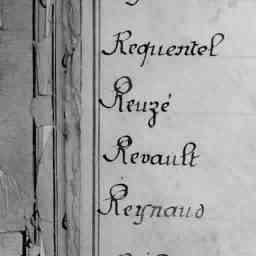 Requentel
Reuzé
Revault
Reynaud